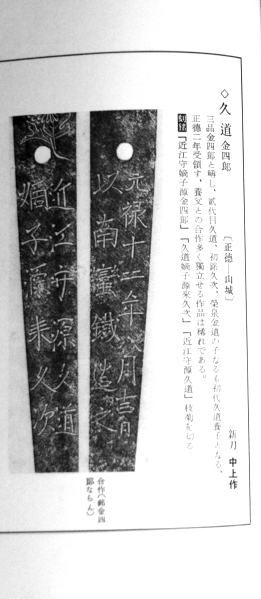 ◇久道 金四郎
〔正徳―山城〕
新刀 中上作
三品金四郎と称し、貳代目久道、初銘久次、榮泉金道の子なるも初代久道養子となる、
正徳二年受領す、養父との合作多く獨立せる作品は稀れである。
刻銘「近江守嫡子源金四郎」「久道嫡子源來久次」「近江守源久道」枝菊を切る
元禄十二年八月吉日
以南蠻鐵造之
近江守源久道
嫡子源來久次
合作(郎金四
郎ならん)